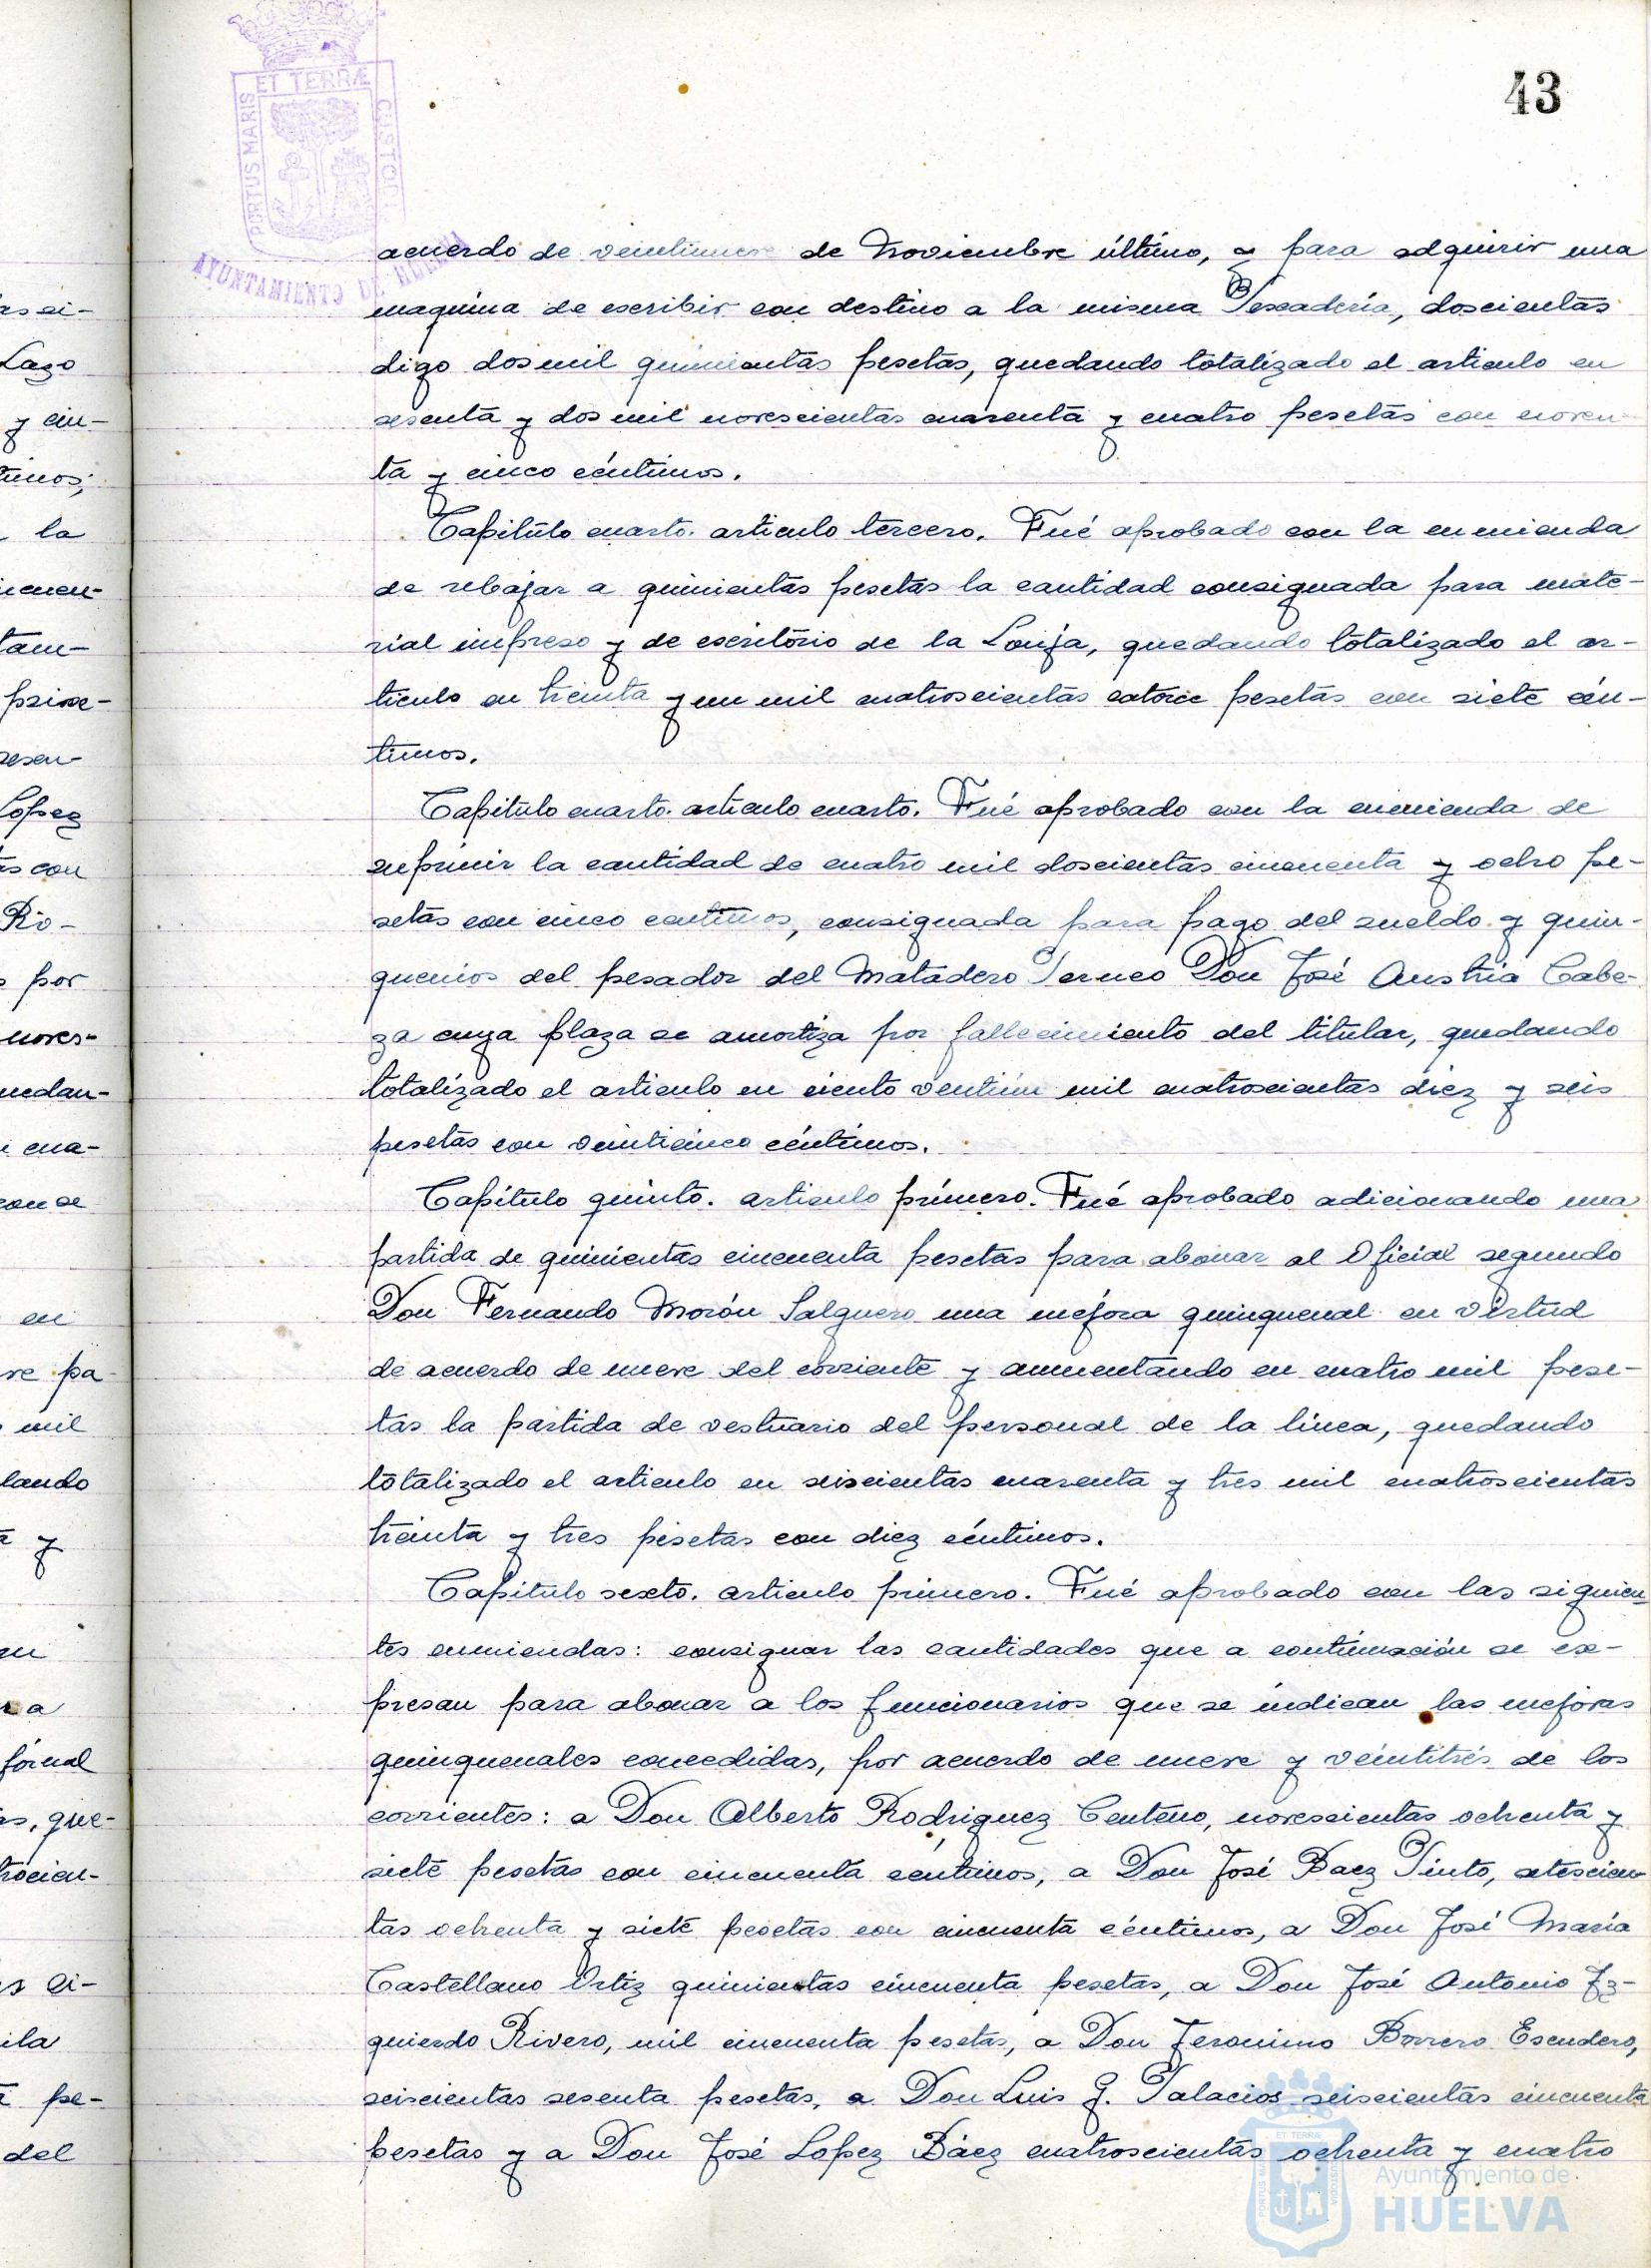 43
PORTUS MARIS ET TERRÆ CUSTODIA
AYUNTAMIENTO DE HUELVA
acuerdo de veintinueve de Noviembre último, y para adquirir una
maquina de escribir con destino a la misma Pescadería, doscientas
digo dos mil quinientas pesetas, quedando totalizado el articulo en
sesenta y dos mil novescientas cuarenta y cuatro pesetas con noven-
ta y cinco céntimos.
Capitulo cuarto. articulo tercero. Fué aprobado con la enmienda
de rebajar a quinientas pesetas la cantidad consignada para mate-
rial impreso y de escritorio de la Lonja, quedando totalizado el ar-
ticulo en treinta y un mil cuatroscientas catorce pesetas con siete cén-
timos.
Capitulo cuarto. articulo cuarto. Fué aprobado con la enmienda de
suprimir la cantidad de cuatro mil doscientas cincuenta y ocho pe-
setas con cinco centimos, consignada para pago del sueldo y quin-
quenios del pesador del Matadero Porneo Don José Austria Cabe-
za cuya plaza se amortiza por fallecimiento del titular, quedando
totalizado el articulo en ciento ventiún mil cuatroscientas diez y seis
pesetas con veinticinco céntimos.
Capítulo quinto. articulo primero. Fué aprobado adicionando una
partida de quinientas cincuenta pesetas para abonar al Oficial segundo
Don Fernando Morón Salguero una mejora quinquenal en virtud
de acuerdo de nueve del corriente y aumentando en cuatro mil pese-
tas la partida de vestuario del personal de la línea, quedando
totalizado el articulo en seiscientas cuarenta y tres mil cuatroscientas
treinta y tres pesetas con diez céntimos.
Capitulo sexto. articulo primero. Fué aprobado con las siguien-
tes enmiendas: consignar las cantidades que a continuación se ex-
presan para abonar a los funcionarios que se indican las mejoras
quinquenales concedidas, por acuerdo de nueve y veintitrés de los
corrientes: a Don Alberto Rodriguez Centeno, novescientas ochenta y
siete pesetas con cincuenta céntimos, a Don José Baez Pinto, setescien-
tas ochenta y siete pesetas con cincuenta céntimos, a Don José María
Castellano Ortiz quinientas cincuenta pesetas, a Don José Antonio Iz-
quierdo Rivero, mil cincuenta pesetas, a Don Jeronimo Borrero Escudero,
seiscientas sesenta pesetas, a Don Luis G. Palacios seiscientas cincuenta
pesetas y a Don José Lopez Báez cuatroscientas ochenta y cuatro
as ci-
Lazo
y cin-
timos;
la
cincuen-
tam-
prime-
Lopez
as con
Rio-
por
noves-
quedan-
cua-
con se
en
ve pa-
mil
dando
y
ra
jornal
as, que-
trocien-
ci-
pe-
del
Ayuntamiento de
HUELVA